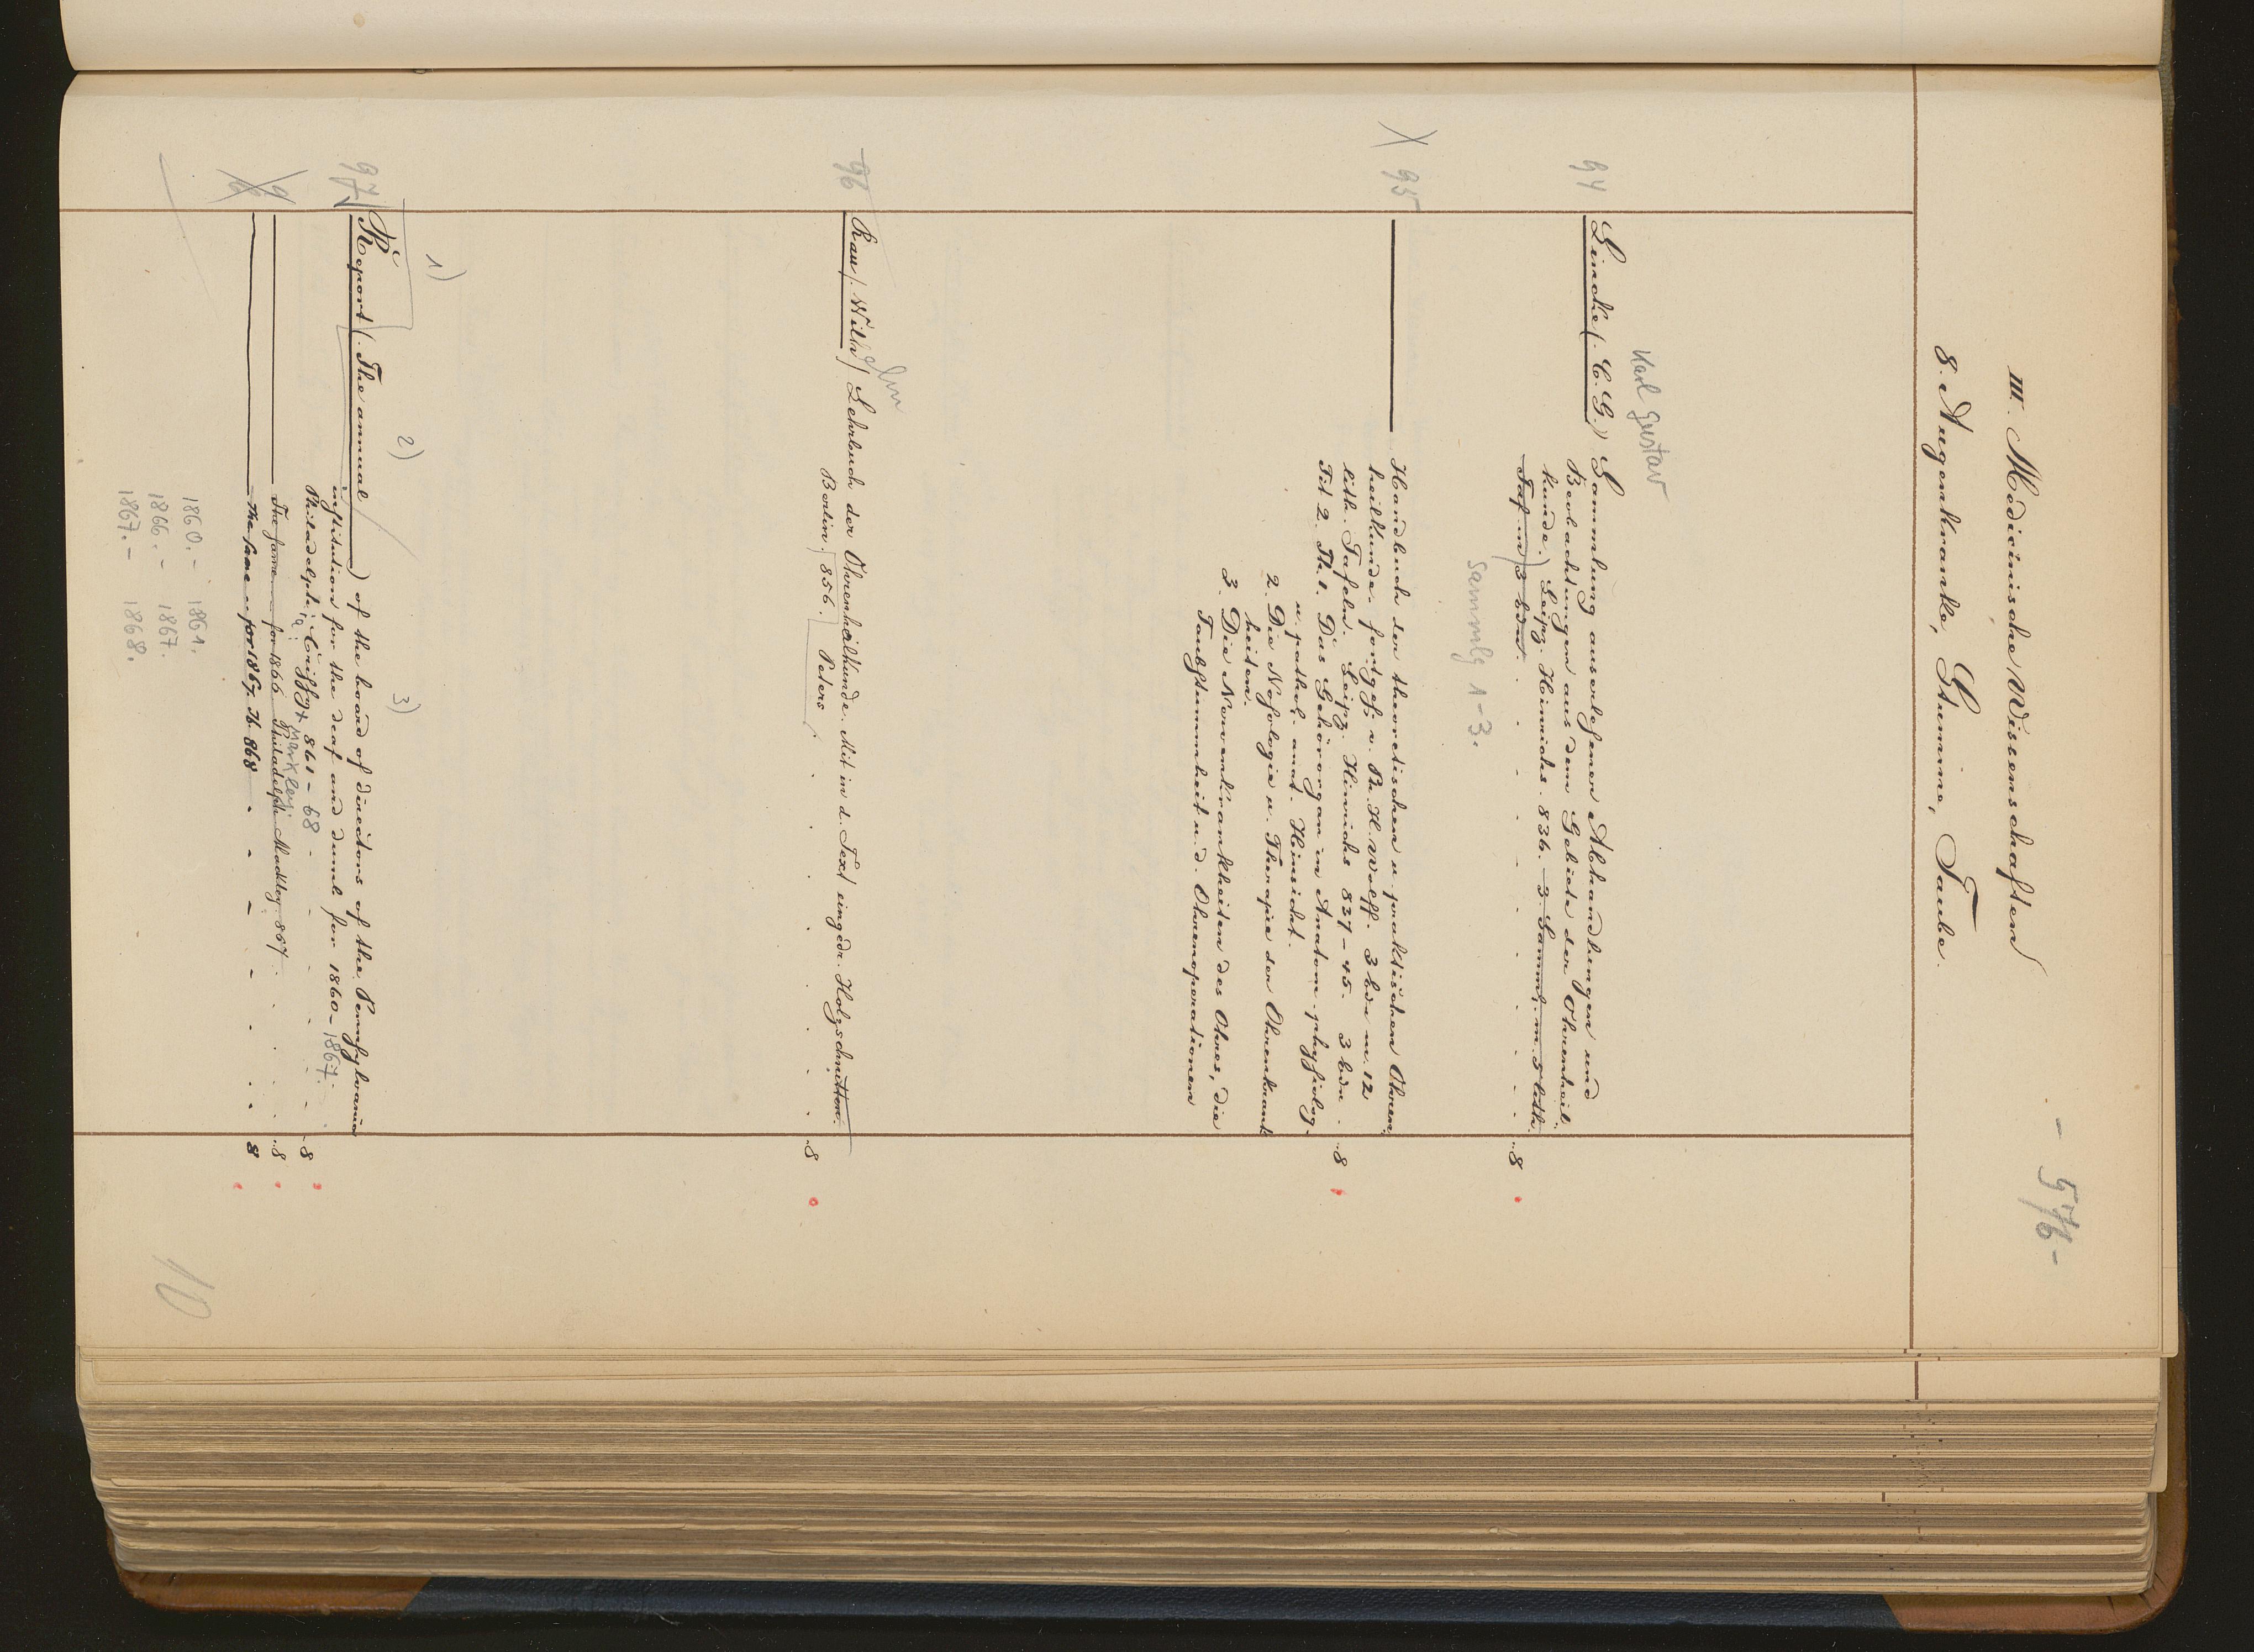 - 576 -
III. Medicinische Wissenschaften
8. Augenkranke, Stumme, Taube.
Karl Gustav
94 Lincke (C. G.) Sammlung auserlesener Abhandlungen und
Beobachtungen aus dem Gebiete der Ohrenheil-
kunde.) Leipz. Hinrichs. 836. 3 Samml. m. 5 lith.
Taf. in 3 bdn. 8
Sammlg 1-3.
95 Handbuch der theoretischen u praktischen Ohren-
heilkunde. fortges. v. Ph. H. Wolff. 3 bde m. 12
lith. Tafeln. Leipz. Hinrichs 837-45. 3 bdn. 8
Tit 2. Th. 1. Das Gehörorgan in Anatom. physiolog.
u. pathol. anat. Hinsicht.
2. Die Nosologie u. Therapie der Ohrenkrank-
heiten.
3. Die Nervenkrankheiten des Ohres, die
Taubstummheit u. d. Ohrenoperationen
96 Rau (Wilh) Lehrbuch der Ohrenheilkunde. Mit in d. Text eingedr. Holzschnitten.
Berlin. 856. Peters 8
1) 2) 3)
97 Report (The annual) of the board of directors of the Pennsylvania
institution for the deaf and dumb for 1860-1867.
Philadelphia: Crissy x Markley 861-68 8
The same for 1866 Philadelph. Markley. 867. 8
The same for 1867. Ib. 868 8
1860. - 1861.
1866. - 1867.
1867. - 1868.
10